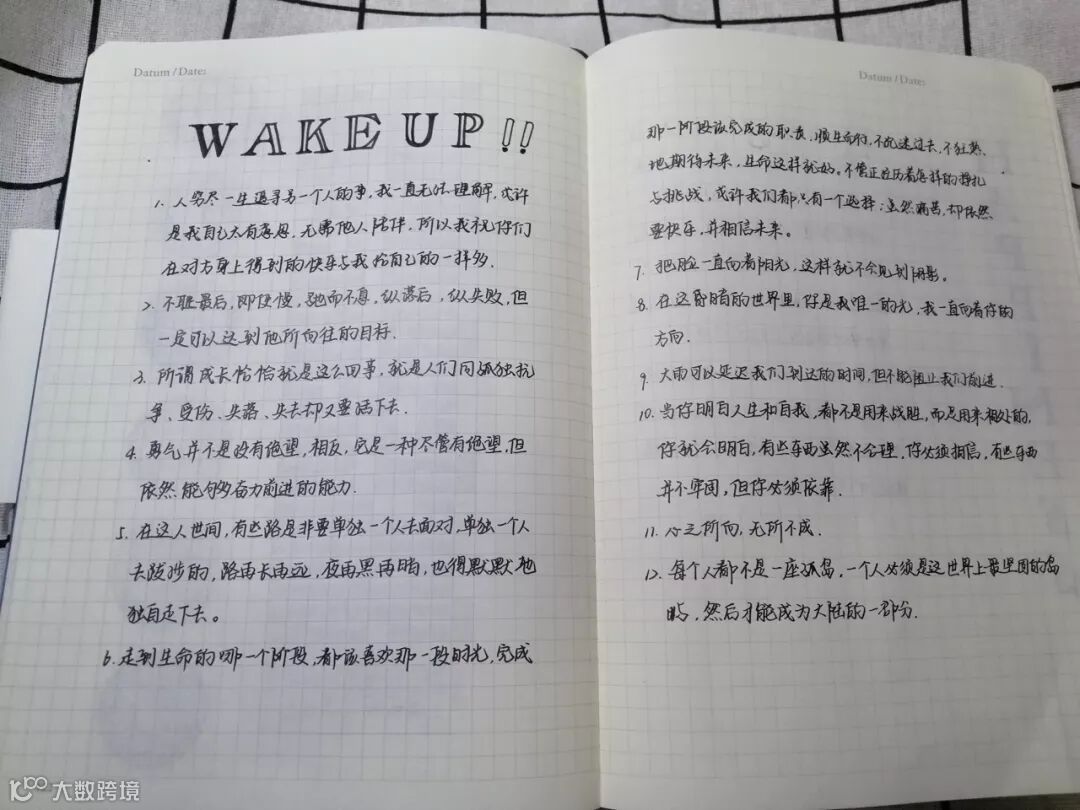 Datum / Date:
WAKE UP !!
1. 人穷尽一生追寻另一个人的事,我一直无法理解,或许
是我自己太有意思,无需他人陪伴,所以我祝你们
在对方身上得到的快乐与我给自己的一样多.
2. 不耻最后,即使慢,驰而不息,纵落后,纵失败,但
一定可以达到他所向往的目标.
3. 所谓成长恰恰就是这么回事,就是人们同孤独抗
争、受伤、失落、失去却又要活下去.
4. 勇气并不是没有绝望,相反,它是一种尽管有绝望,但
依然能够奋力前进的能力.
5. 在这人世间,有些路是非要单独一个人去面对,单独一个人
去跋涉的,路再长再远,夜再黑再暗,也得默默地
独自走下去。
6. 走到生命的哪一个阶段,都该喜欢那一段时光,完成
Datum / Date:
那一阶段该完成的职责,顺生而行,不沉迷过去,不狂热
地期待未来,生命这样就好。不管正经历着怎样的挣扎
与挑战,或许我们都只有一个选择:虽然痛苦,却依然
要快乐,并相信未来。
7. 把脸一直向着阳光,这样就不会见到阴影。
8. 在这昏暗的世界里,你是我唯一的光,我一直向着你的
方向.
9. 大雨可以延迟我们到达的时间,但不能阻止我们前进.
10. 当你明白人生和自我,都不是用来战胜,而是用来相处的,
你就会明白,有些东西虽然不合理,你必须相信,有些东西
并不牢固,但你必须依靠.
11. 心之所向,无所不成.
12. 每个人都不是一座孤岛,一个人必须是这世界上最坚固的岛
屿,然后才能成为大陆的一部分.
大数跨境